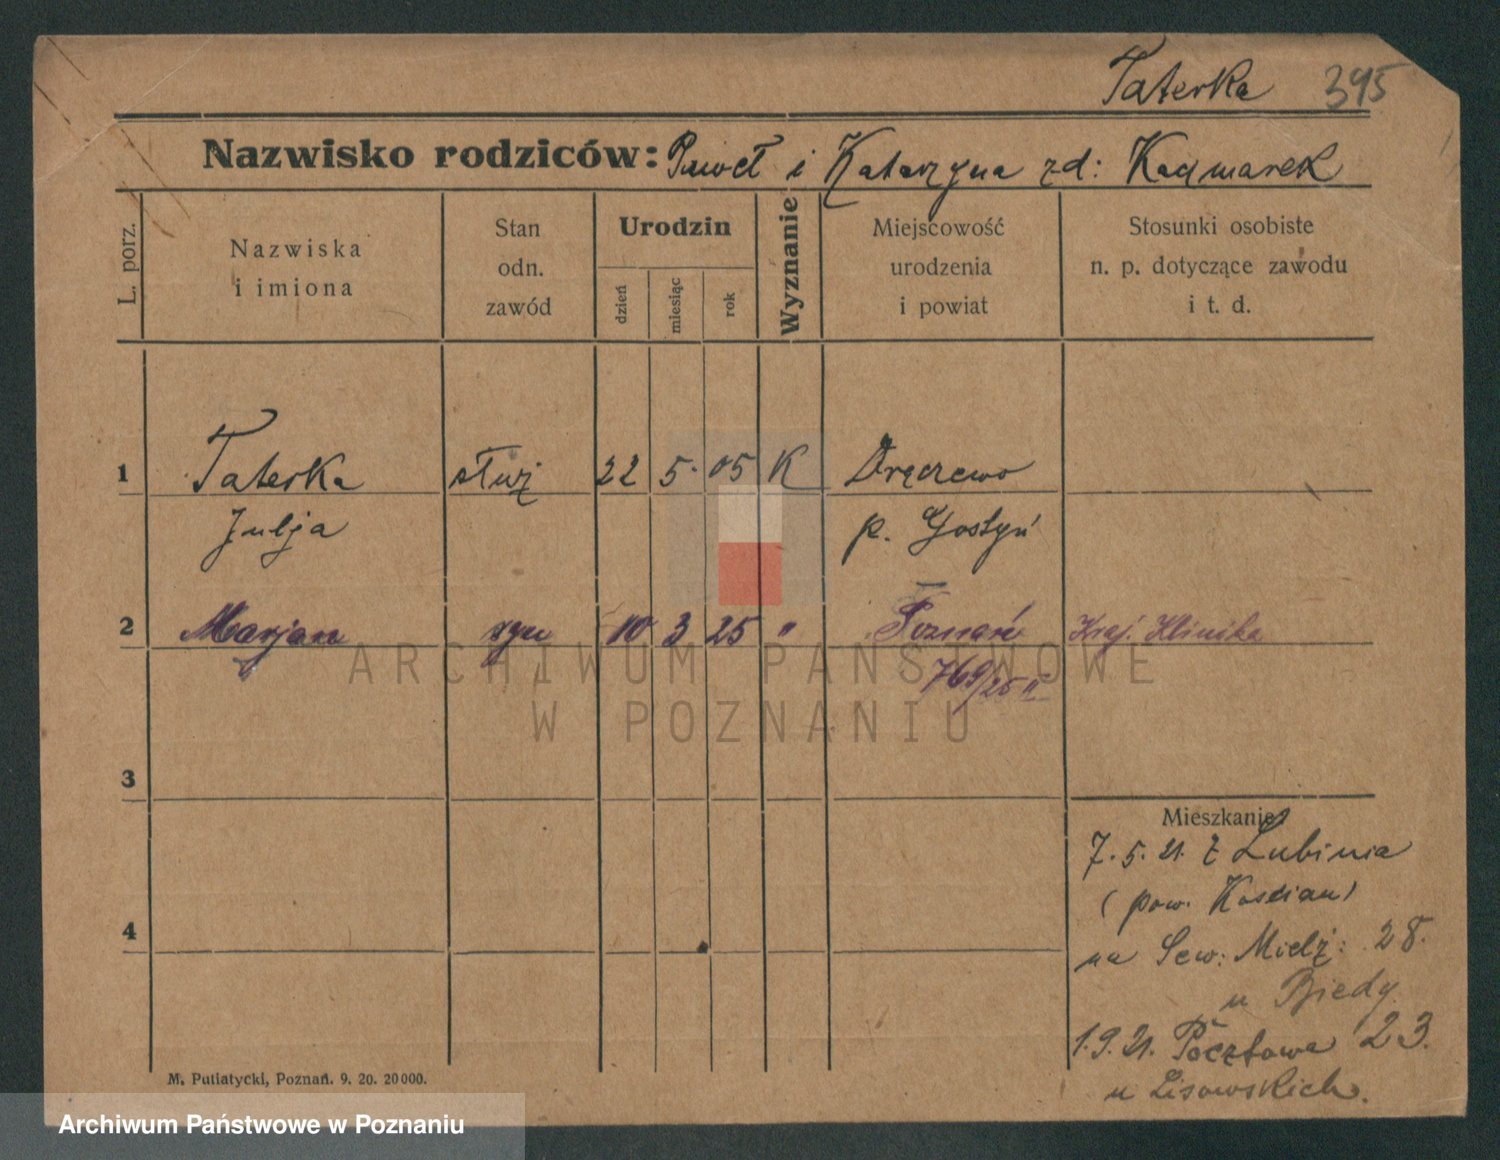 Taterka 395
Nazwisko rodziców: Paweł i Katarzyna zd: Kaczmarek
L. porz.
Nazwiska
i imiona
Stan
odn.
zawód
Urodzin
dzień
miesiąc
rok
Wyznanie
Miejscowość
urodzenia
i powiat
Stosunki osobiste
n. p. dotyczące zawodu
i t. d.
1 Taterka służ 22 5. 05 K Dręczewo
Julja p. Gostyń
2 Marjan syn 10 3 25 " Poznań Kraj. Klinika
769/25 II
3
4
Mieszkanie
7. 5. 21. z Lubinia
(pow. Kościan)
na Sew: Mielż: 28.
u Biedy
1. 9. 21. Pocztowa 23.
u Lisowskich.
M. Putiatycki, Poznań. 9. 20. 20 000.
ARCHIWUM PAŃSTWOWE
W POZNANIU
Archiwum Państwowe w Poznaniu